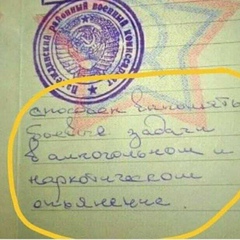 районный военный комиссариат
способен выполнять
боевые задачи
в алкогольном и
наркотическом
опьянение.